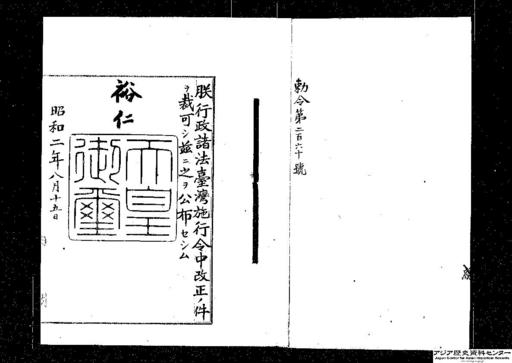 勅令第二百六十號
朕行政諸法臺灣施行令中改正ノ件
ヲ裁可シ茲ニ之ヲ公布セシム
裕仁
天皇
御璽
昭和二年八月十五日
アジア歴史資料センター
Japan Center for Asian Historical Records